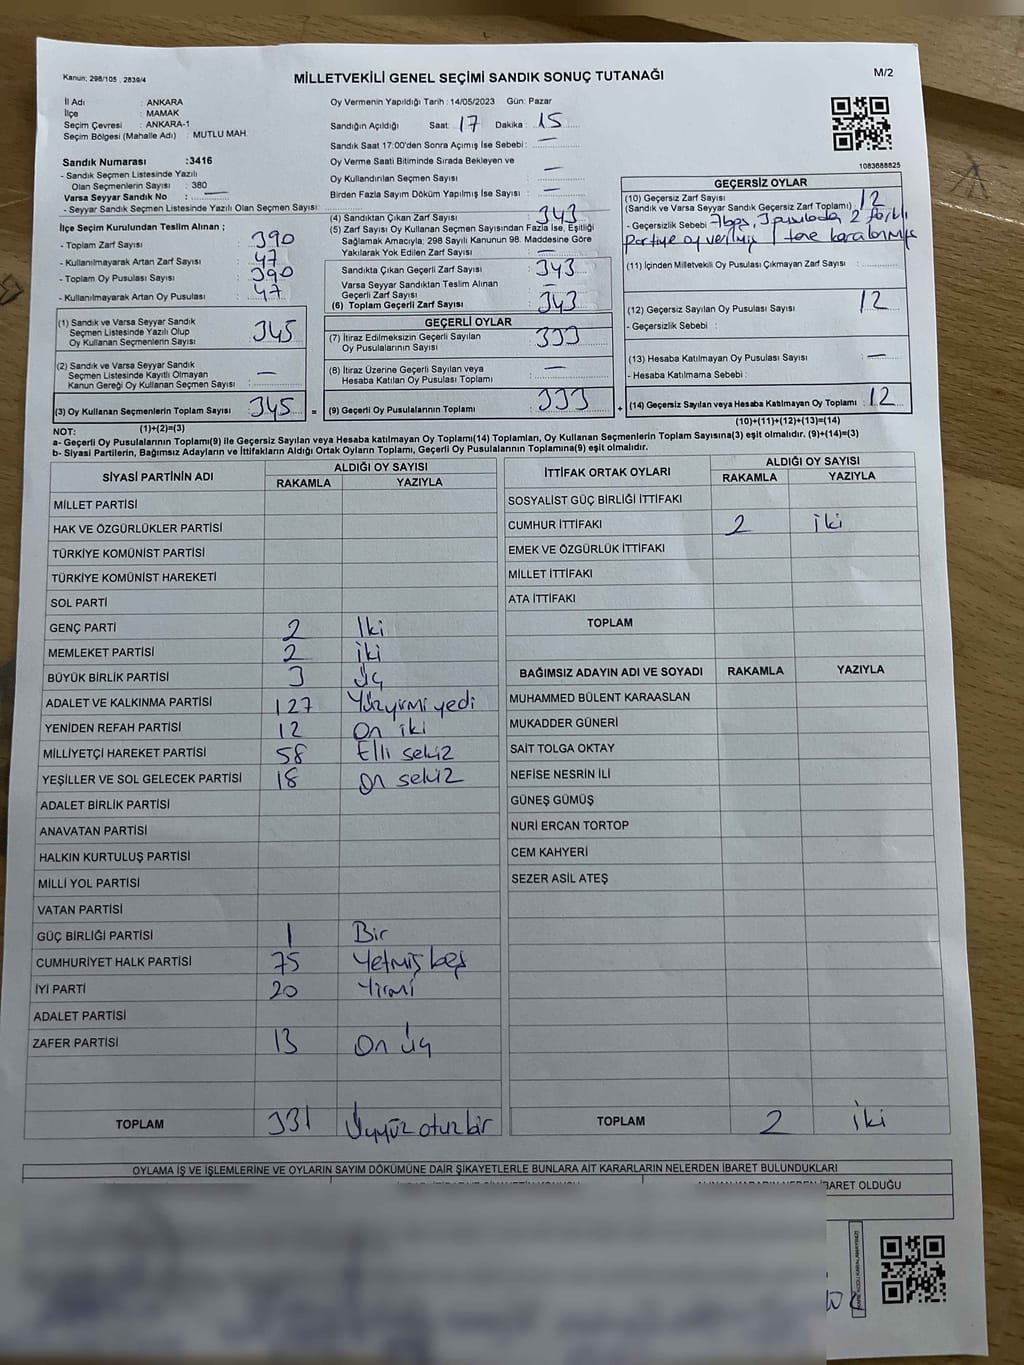 Kanun; 298/105 , 2839/4
MİLLETVEKİLİ GENEL SEÇİMİ SANDIK SONUÇ TUTANAĞI
M/2
İl Adı : ANKARA
İlçe : MAMAK
Seçim Çevresi : ANKARA-1
Seçim Bölgesi (Mahalle Adı) : MUTLU MAH.
Sandık Numarası :3416
- Sandık Seçmen Listesinde Yazılı
Olan Seçmenlerin Sayısı : 380
Varsa Seyyar Sandık No : —
- Seyyar Sandık Seçmen Listesinde Yazılı Olan Seçmen Sayısı:
İlçe Seçim Kurulundan Teslim Alınan ;
- Toplam Zarf Sayısı : 390
- Kullanılmayarak Artan Zarf Sayısı : 47
- Toplam Oy Pusulası Sayısı : 390
- Kullanılmayarak Artan Oy Pusulası : 47
(1) Sandık ve Varsa Seyyar Sandık
Seçmen Listesinde Yazılı Olup
Oy Kullanan Seçmenlerin Sayısı : 345
(2) Sandık ve Varsa Seyyar Sandık
Seçmen Listesinde Kayıtlı Olmayan
Kanun Gereği Oy Kullanan Seçmen Sayısı : —
(3) Oy Kullanan Seçmenlerin Toplam Sayısı : 345 =
(1)+(2)=(3)
Oy Vermenin Yapıldığı Tarih : 14/05/2023 Gün: Pazar
Sandığın Açıldığı Saat: 17 Dakika : 15
Sandık Saat 17:00'den Sonra Açımış İse Sebebi : —
Oy Verme Saati Bitiminde Sırada Bekleyen ve
Oy Kullandırılan Seçmen Sayısı : —
Birden Fazla Sayım Döküm Yapılmış İse Sayısı : —
(4) Sandıktan Çıkan Zarf Sayısı : 343
(5) Zarf Sayısı Oy Kullanan Seçmen Sayısından Fazla İse, Eşitliği
Sağlamak Amacıyla; 298 Sayılı Kanunun 98. Maddesine Göre
Yakılarak Yok Edilen Zarf Sayısı : —
Sandıkta Çıkan Geçerli Zarf Sayısı : 343
Varsa Seyyar Sandıktan Teslim Alınan
Geçerli Zarf Sayısı : —
(6) Toplam Geçerli Zarf Sayısı : 343
GEÇERLİ OYLAR
(7) İtiraz Edilmeksizin Geçerli Sayılan
Oy Pusulalarının Sayısı : 333
(8) İtiraz Üzerine Geçerli Sayılan veya
Hesaba Katılan Oy Pusulası Toplamı : —
(9) Geçerli Oy Pusulalarının Toplamı : 333 +
1083688825
GEÇERSİZ OYLAR
(10) Geçersiz Zarf Sayısı
(Sandık ve Varsa Seyyar Sandık Geçersiz Zarf Toplamı) : 12
- Geçersizlik Sebebi : 7 boş, 3 pusulada 2
partiye oy verilmiş 1 tane karalanmış
(11) İçinden Milletvekili Oy Pusulası Çıkmayan Zarf Sayısı :
(12) Geçersiz Sayılan Oy Pusulası Sayısı : 12
- Geçersizlik Sebebi :
(13) Hesaba Katılmayan Oy Pusulası Sayısı : —
- Hesaba Katılmama Sebebi :
(14) Geçersiz Sayılan veya Hesaba Katılmayan Oy Toplamı : 12
(10)+(11)+(12)+(13)=(14)
NOT:
a- Geçerli Oy Pusulalarının Toplamı(9) ile Geçersiz Sayılan veya Hesaba katılmayan Oy Toplamı(14) Toplamları, Oy Kullanan Seçmenlerin Toplam Sayısına(3) eşit olmalıdır. (9)+(14)=(3)
b- Siyasi Partilerin, Bağımsız Adayların ve İttifakların Aldığı Ortak Oyların Toplamı, Geçerli Oy Pusulalarının Toplamına(9) eşit olmalıdır.
SİYASİ PARTİNİN ADI ALDIĞI OY SAYISI
RAKAMLA YAZIYLA
MİLLET PARTİSİ
HAK VE ÖZGÜRLÜKLER PARTİSİ
TÜRKİYE KOMÜNİST PARTİSİ
TÜRKİYE KOMÜNİST HAREKETİ
SOL PARTİ
GENÇ PARTİ 2 İki
MEMLEKET PARTİSİ 2 iki
BÜYÜK BİRLİK PARTİSİ 3 Üç
ADALET VE KALKINMA PARTİSİ 127 Yüzyirmi yedi
YENİDEN REFAH PARTİSİ 12 On iki
MİLLİYETÇİ HAREKET PARTİSİ 58 Elli sekiz
YEŞİLLER VE SOL GELECEK PARTİSİ 18 On sekiz
ADALET BİRLİK PARTİSİ
ANAVATAN PARTİSİ
HALKIN KURTULUŞ PARTİSİ
MİLLİ YOL PARTİSİ
VATAN PARTİSİ
GÜÇ BİRLİĞİ PARTİSİ 1 Bir
CUMHURİYET HALK PARTİSİ 75 Yetmiş beş
İYİ PARTİ 20 Yirmi
ADALET PARTİSİ
ZAFER PARTİSİ 13 On Üç
TOPLAM 331 Üçyüz otuz bir
İTTİFAK ORTAK OYLARI ALDIĞI OY SAYISI
RAKAMLA YAZIYLA
SOSYALİST GÜÇ BİRLİĞİ İTTİFAKI
CUMHUR İTTİFAKI 2 iki
EMEK VE ÖZGÜRLÜK İTTİFAKI
MİLLET İTTİFAKI
ATA İTTİFAKI
TOPLAM
BAĞIMSIZ ADAYIN ADI VE SOYADI RAKAMLA YAZIYLA
MUHAMMED BÜLENT KARAASLAN
MUKADDER GÜNERİ
SAİT TOLGA OKTAY
NEFİSE NESRİN İLİ
GÜNEŞ GÜMÜŞ
NURİ ERCAN TORTOP
CEM KAHYERİ
SEZER ASİL ATEŞ
TOPLAM 2 iki
OYLAMA İŞ VE İŞLEMLERİNE VE OYLARIN SAYIM DÖKÜMÜNE DAİR ŞİKAYETLERLE BUNLARA AİT KARARLARIN NELERDEN İBARET BULUNDUKLARI
ALINAN KARARIN NEDEN İBARET OLDUĞU